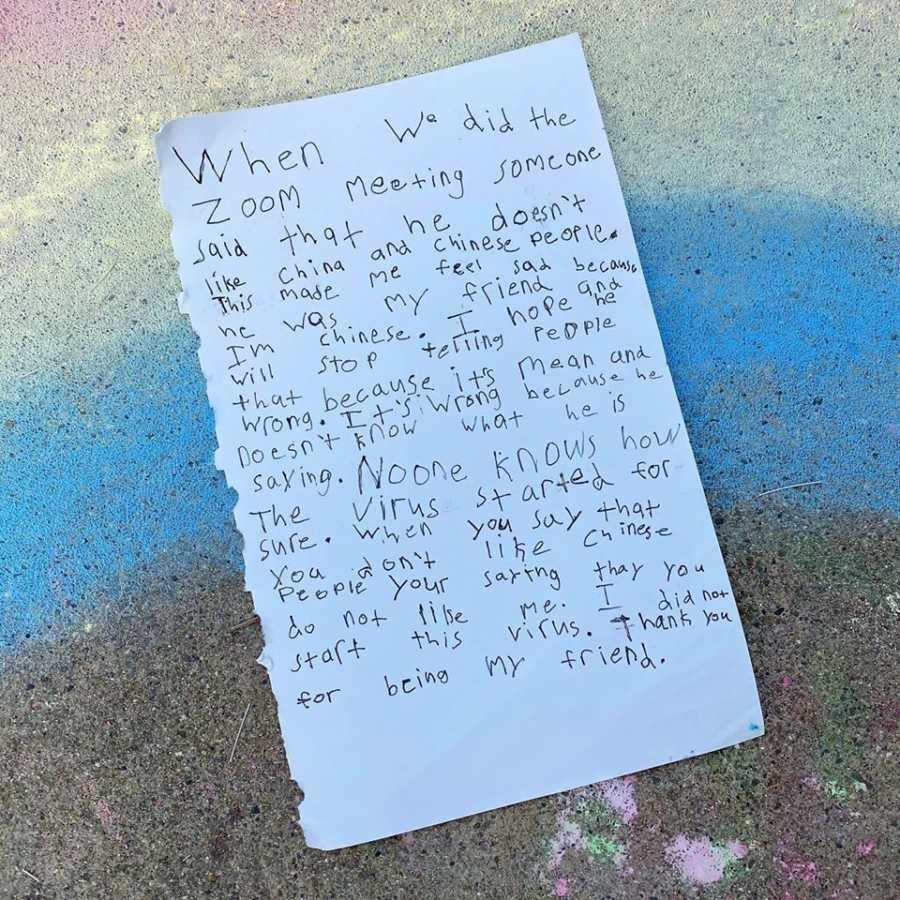 When We did the
Zoom Meeting someone
said that he doesn't
like China and Chinese People.
This made me feel sad because
he was my friend and
Im chinese. I hope he
will stop telling People
that because it's mean and
wrong. It's wrong because he
Doesn't know what he is
saying. Noone knows how
The virus started for
sure. When you say that
You don't like Chinese
People your saying thay you
do not like me. I did not
start this virus. Thank you
for being my friend.